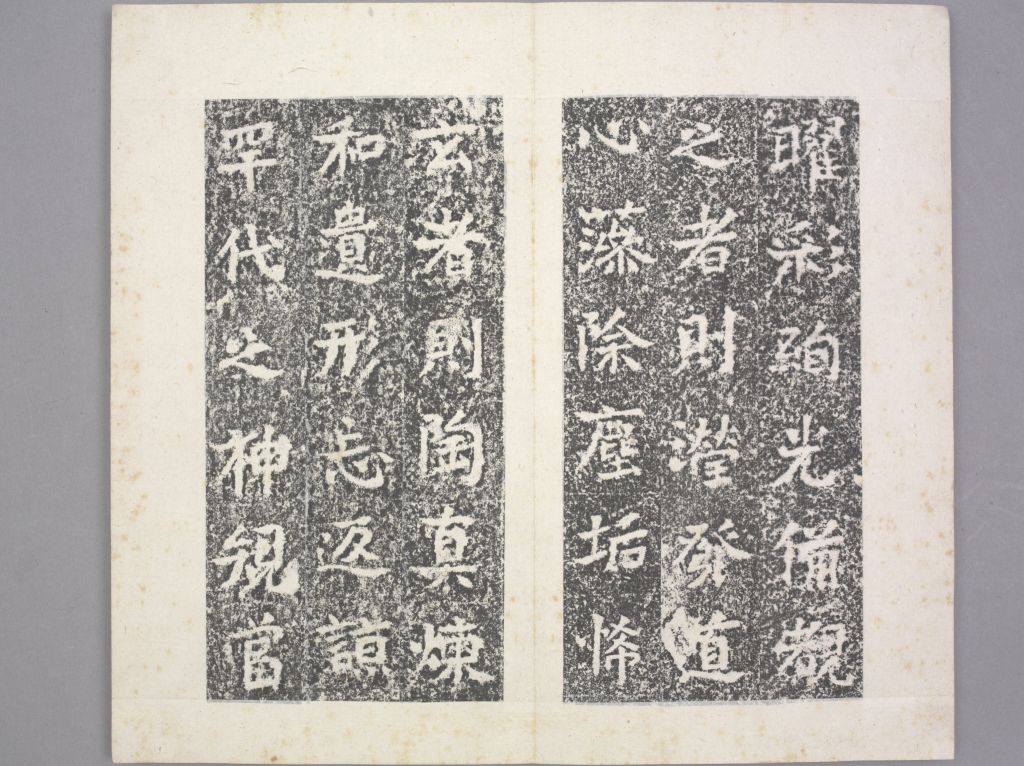 曜彩光備覩
之者則瀅發道
心藻除塵垢悕
玄者則陶真煉
和遺形忘返
罕代之神規當